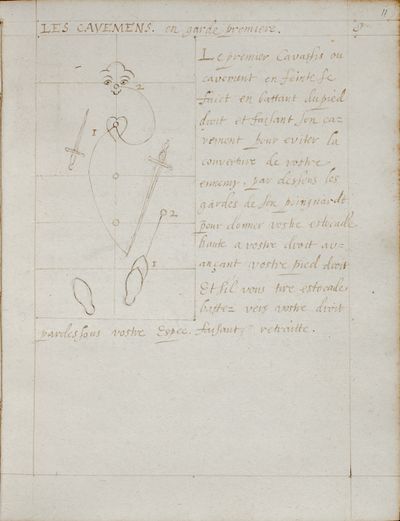 11
LES CAVEMENS. en garde premiere. 9
Le premier Cavassis ou
cavement en feinte se
faict en battant du pied
droit et faisant son ca-
vement pour eviter la
couverture de vostre
ennemy, par dessous les
gardes de son poingnardt
pour donner vostre estocade
haute a vostre droit av-
ançant vostre pied droit
Et sil vous tire estocade
battez vers vostre droit
pardessous vostre Espee faisant retraitte.
2
1
2
1